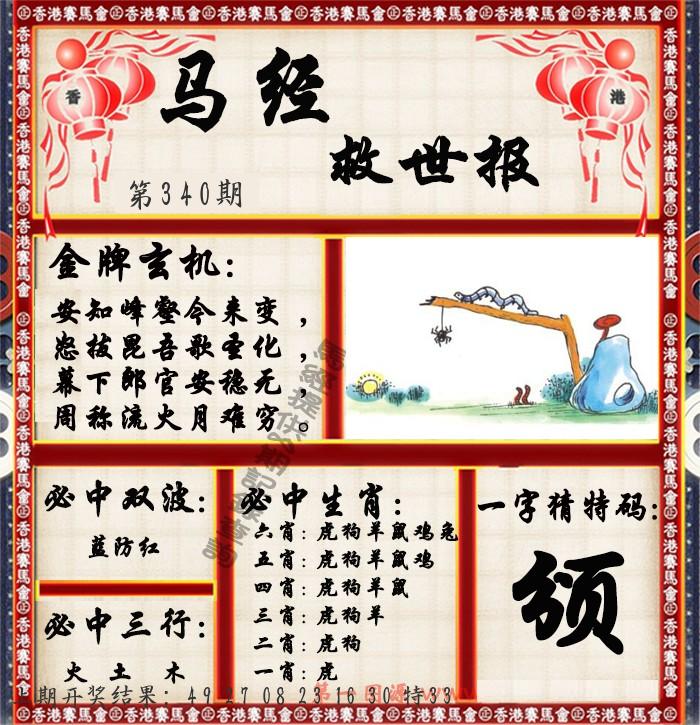 香港賽馬會
香
港
马经
救世报
第340期
金牌玄机：
安知峰壑今来变，
怨拔昆吾歌圣化，
幕下郎官安稳无，
周称流火月难穷。
必中双波：
蓝防红
必中三行：
火 土 木
必中生肖：
六肖：虎狗羊鼠鸡兔
五肖：虎狗羊鼠鸡
四肖：虎狗羊鼠
三肖：虎狗羊
二肖：虎狗
一肖：虎
一字猜特码：
颁
期开奖结果：49 27 08 23 16 30 特33